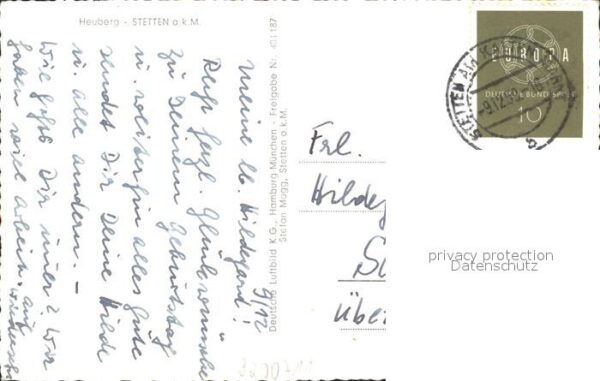 Heuberg - STETTEN a.k.M.
Deutsche Luftbild K.G., Hamburg-München - Freigabe Nr. 401187
Stefan Mogg, Stetten a.k.M.
9/12
Meine lb. Hildegard!
Recht herzl. Glückwünsche
zu Deinem Geburtstag
u. weiterhin alles Gute
sendet Dir Deine Hilde
u. alle andern. -
Wie gehts Dir immer? Wir
haben viel Arbeit. auf
EUROPA
DEUTSCHE BUNDESPOST
10
STETTEN AM KALTEN MARKT
-9.12.59
Frl.
Hilde
Über
privacy protection
Datenschutz